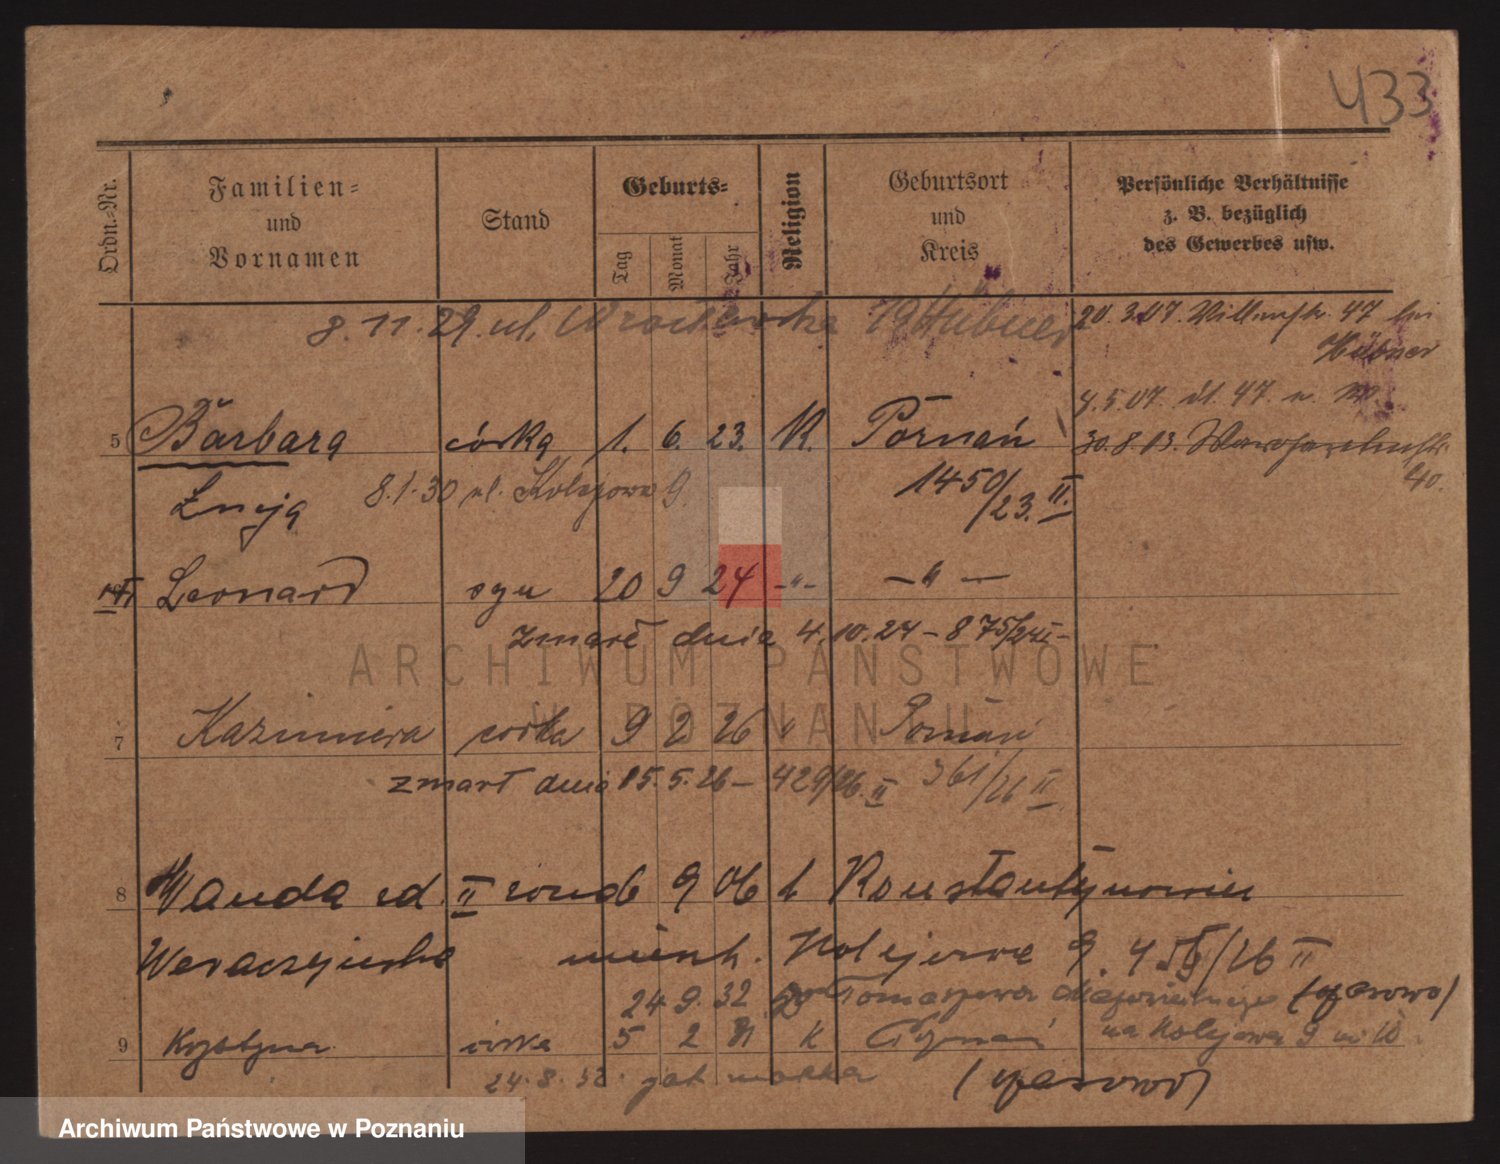 433
Ordn.-Nr.
Familien-
und
Vornamen
Stand
Geburts-
Tag
Monat
Jahr
Religion
Geburtsort
und
Kreis
Persönliche Verhältnisse
z. B. bezüglich
des Gewerbes usw.
8.11.29. ul. Wrocławska 19 Hübner
20.3.07. 47 bei
Hübner
5 Barbara córka 1. 6. 23. K. Poznań
8.5.07. 47
30.8.13.
40.
8.1.30 ul. Kolejowa 9. 1450/23. II.
Leonard syn 20 9 24 -"- -"-
zmarł dnia 4.10.24 - 875/24 II -
7 Kazimiera córka 9 2 26 " Poznań
zmarł dnia 15.5.26 - 429/26. II 361/26 II
8 Wanda zd. II żona 6 9 06 k Konstantynowiec
mieszk. Kolejowa 9. /26 II
24.9.32 Tomaszowa Mazowieckiego (czasowo)
9 Krystyna córka 5 2 31 k Poznań na Kolejowa 9 m 10
24.8.32. jak matka (czasowo)
ARCHIWUM PAŃSTWOWE
W POZNANIU
Archiwum Państwowe w Poznaniu